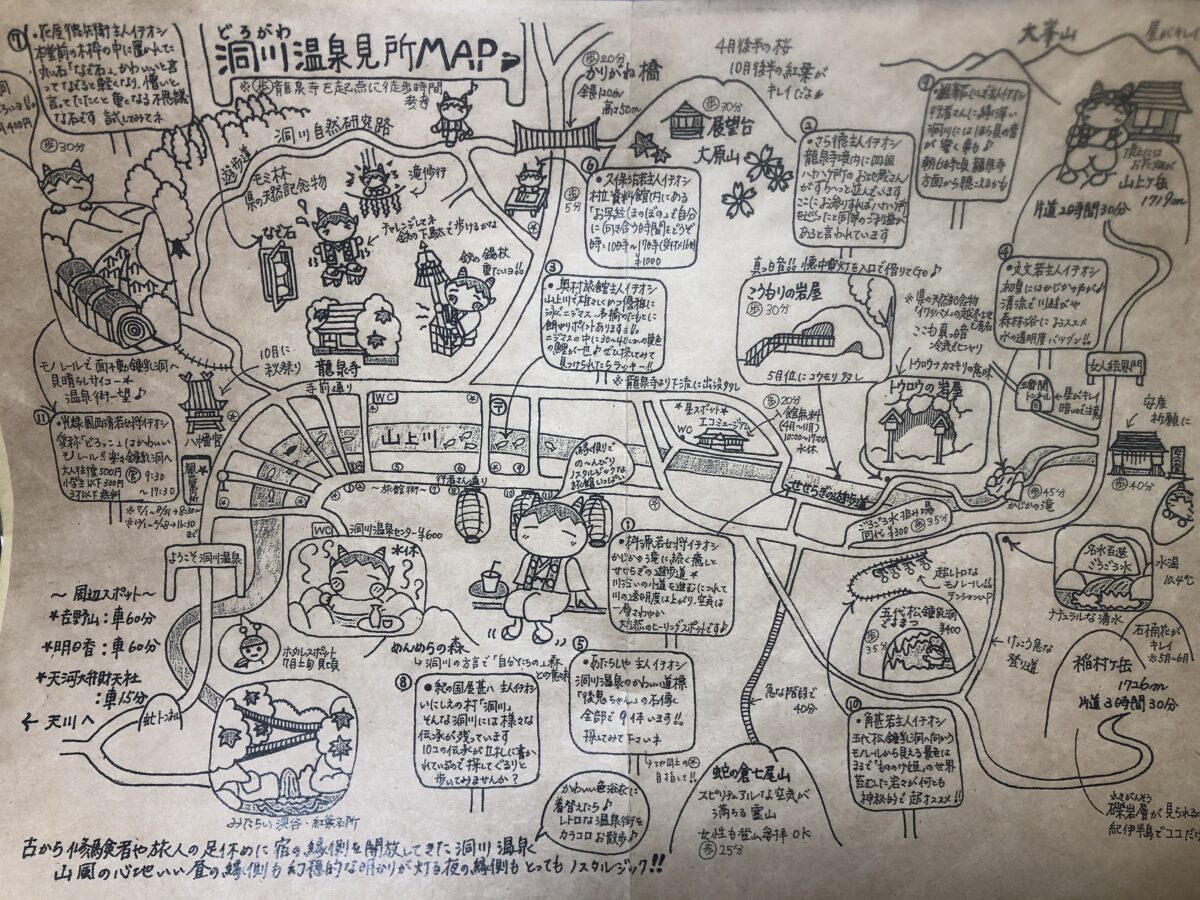 どろがわ
洞川温泉見所MAP
※(歩)龍泉寺を起点に徒歩時間
参考
⑦・花屋徳兵衛主人イチオシ
本堂前の木枠の中に置かれてた
丸い石「なで石」。かわいいと言
ってなでると軽くなり、憎いと
言ってたたくと重くなる不思議
な石です 試してみてネ
400円
(歩)30分
洞川自然研究路
遊歩道
モミ林
県の天然記念物
滝修行
なで石
チャレンジしてネ
鉄の下駄で歩けるかな
鉄の錫杖
重たいヨ!!
龍泉寺
寺前通り
10月に
秋祭り
八幡宮
モノレールで面不動鍾乳洞へ
見晴らしサイコー★
温泉街一望♪
⑪・光緑園西清若女将イチオシ
愛称「どろっこ」はかわいい
モノレール!!楽々鍾乳洞へ
大人往復500円 (営)9:30
小学生以下300円 ~17:30
3才以下無料
(歩)20分
かりがね橋
全長120m
高さ50m
(歩)5分
4月後半の桜
10月後半の紅葉が
キレイだよ♪
(歩)30分
展望台
大原山
⑥・久保治若主人イチオシ
村立資料館内にある
「お写経(ほのぼの)」で自分
に向き合う時間をどうぞ
¥1000
③・奥村旅館主人イチオシ
山上川で雄々しくかつ優雅に
泳ぐニジマス。吊橋のたもとに
餌やりポイントあります!!
ニジマスの中に30~40cmの黄色
の鱒が一匹♪ぜひ探してみて
見つけられたらラッキー!!
※龍泉寺より下流に出没タタレ
②・さら徳主人イチオシ
龍泉寺境内に四国
八十八ヶ所のお地蔵さん
がずら~っと並んでいます
ここにお参りすれば八十八ヶ所
をまわったと同等のご利益が
あると言われています
行者さんに縁の深い
洞川にはほら貝の音
が響く事も♪
朝6時半頃龍泉寺
方面から聴こえるかも
大峯山
星がキレイ
山上ヶ岳
1719m
片道2時間30分
真っ暗!!懐中電灯を入口で借りてGO♪
こうもりの岩屋
(歩)30分
5月位にコウモリタタレ
※県の天然記念物
ここも真っ暗
冷気でヒンヤリ
トウロウカマキリの意味
トウロウの岩屋
④・文文若主人イチオシ
初夏にはかじかの声が♪
清流で川遊びや
森林浴におススメ
水の透明度バツグン!!
女人結界門
五番関
トンネル
星がキレイ
暗いので注意
安産
祈願に
(歩)40分
WC
〒
山上川
行者さん通り
~旅館街~
★星スポット★
エコミュージアム
WC
(歩)20分
入館無料
(4月~11月)
10:00~17:00
水休
せせらぎの遊歩道
ごろごろ水汲み場
1回代¥300
(歩)35分
(歩)45分
かじかの滝
名水百選
ごろごろ水
ナチュラルな湧水
水温
10.4℃
縁側での~んびり
ノスタルジックな
旅館いっぱい
WC
洞川温泉センター ¥600
水休
ようこそ洞川温泉
~周辺スポット~
★吉野山:車60分
★明日香:車60分
★天河大弁財天社
:車15分
←天川へ
虻トンネル
ホタルスポット
7月上旬見頃
めんめらの森
↳洞川の方言で「自分たちの」森
との意味
みたらい渓谷・紅葉名所
⑧・紀の国屋甚八主人イチオシ
いにしえの村「洞川」
そんな洞川には様々な
伝承が残っています
10コの伝承が立札に書か
れているので探してぐるりと
歩いてみませんか?
①・桝源若女将イチオシ
かじかの滝に続く癒しと
せせらぎの遊歩道★
川沿いの小道を進むにつれて
川の透明度は上がり、空気は
より爽やか
大自然のヒーリングスポットです♪
⑤・あたらしや主人イチオシ
洞川温泉のかわいい道標
「後鬼ちゃん」の石像く
全部で9体います!!
探してみて下さいネ
↳地図上の★
目指して!!
かわいい色浴衣に
着替えたら♪
レトロな温泉街を
カラコロお散歩♪
急な階段で
40分
蛇の倉七尾山
スピリチュアルな空気が
満ちる霊山
女性も登山参拝OK
(歩)25分
超レトロな
モノレール!!
テンションUP
五代松鍾乳洞
ごよまつ
¥400
(歩)35分
けっこう急な
登り道
⑩・角甚若主人イチオシ
五代松鍾乳洞へ向かう
モノレールから見える景色は
まるで「もののけ姫」の世界
苔むした岩々が何とも
神秘的で超オススメ!!
石楠花が
キレイ
※5月~6月
稲村ヶ岳
1726m
片道3時間30分
礫岩層が見られる
紀伊半島でココだけ
古から修験者や旅人の足休めに宿の縁側を開放してきた洞川温泉
山風の心地いい昼の縁側も幻想的な明かりが灯る夜の縁側もとってもノスタルジック!!